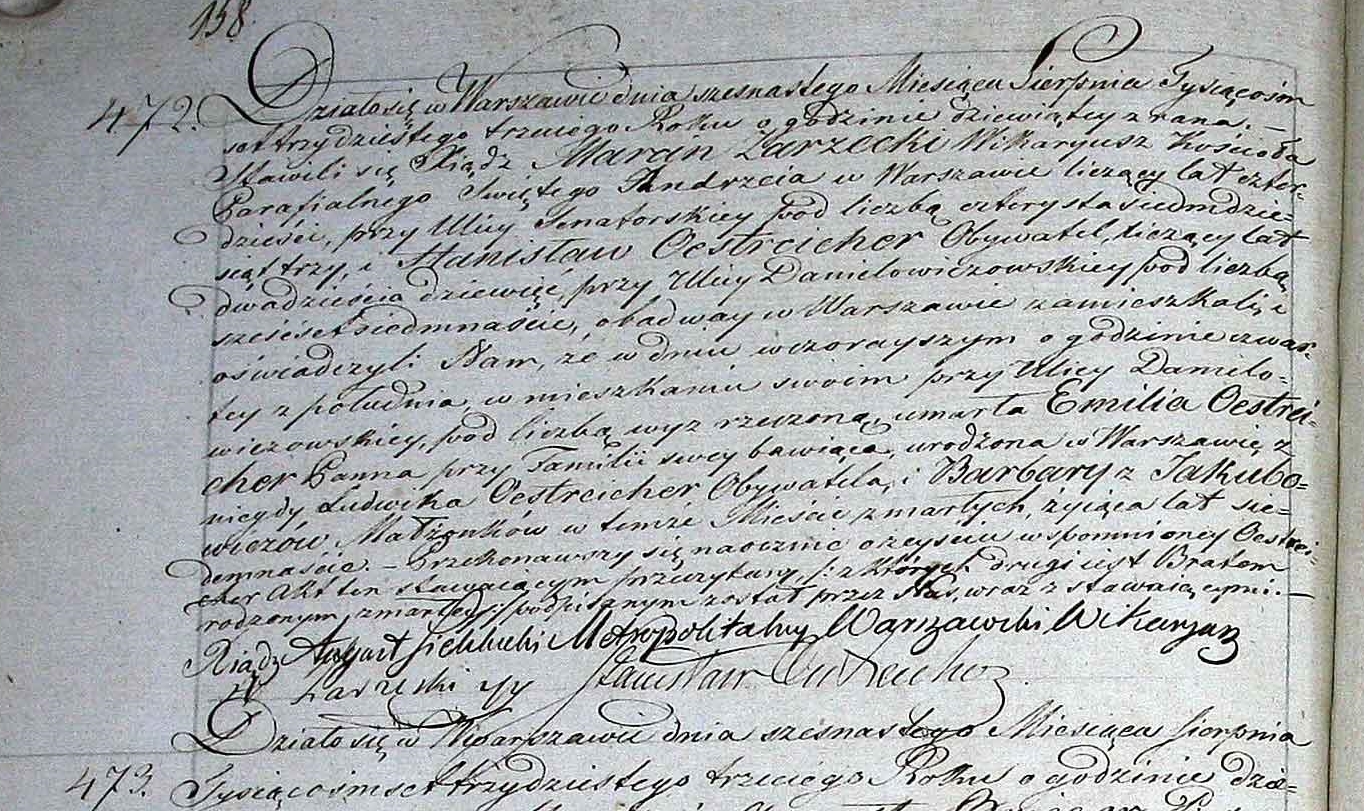 158
472. Działo się w Warszawie dnia szesnastego Miesiąca Sierpnia Tysiącośm
set trzydziestego trzeciego Roku o godzinie dziewiątey z rana. —
Stawili się Xiądz Maran Zarzecki Wikaryusz Kościoła
Parafialnego Świętego Andrzeia w Warszawie liczący lat czter-
dzieści, przy Ulicy Senatorskiey pod liczbą czterysta siedmdzie-
siąt trzy, i Stanisław Oestreicher Obywatel, liczący lat
dwadzieścia dziewięć, przy Ulicy Danielowiczowskiey pod liczbą
sześćset siedmnaście, obadway w Warszawie zamieszkali, i
oświadczyli Nam, że w dniu wczorayszym o godzinie czwar-
tey z południa, w mieszkaniu swoim przy Ulicy Danielo-
wiczowskiey, pod liczbą wyz rzeczoną, umarła Emilia Oestrei-
cher Panna przy Familii swey bawiąca, urodzona w Warszawie, z
niegdy Ludwika Oestreicher Obywatela, i Barbary z Jakubo-
wiczów Małżonków w temże Mieście zmarłych, żyiąca lat sie-
demnaście. — Przekonawszy się naocznie o zeyściu wspomnioney Oestrei-
cher Akt ten stawaiącym przeczytany /: z których drugi iest Bratem
rodzonym zmarłey :/ podpisanym został przez Nas, wraz z stawaiącymi. —
Xiądz August Metropolitalny Warszawski Wikaryusz
X Zarzecki Stanisław Oestreicher
Działo się w Warszawie dnia szesnastego Miesiąca Sierpnia
473. Tysiącośmset trzydziestego trzeciego Roku o godzinie dzie-